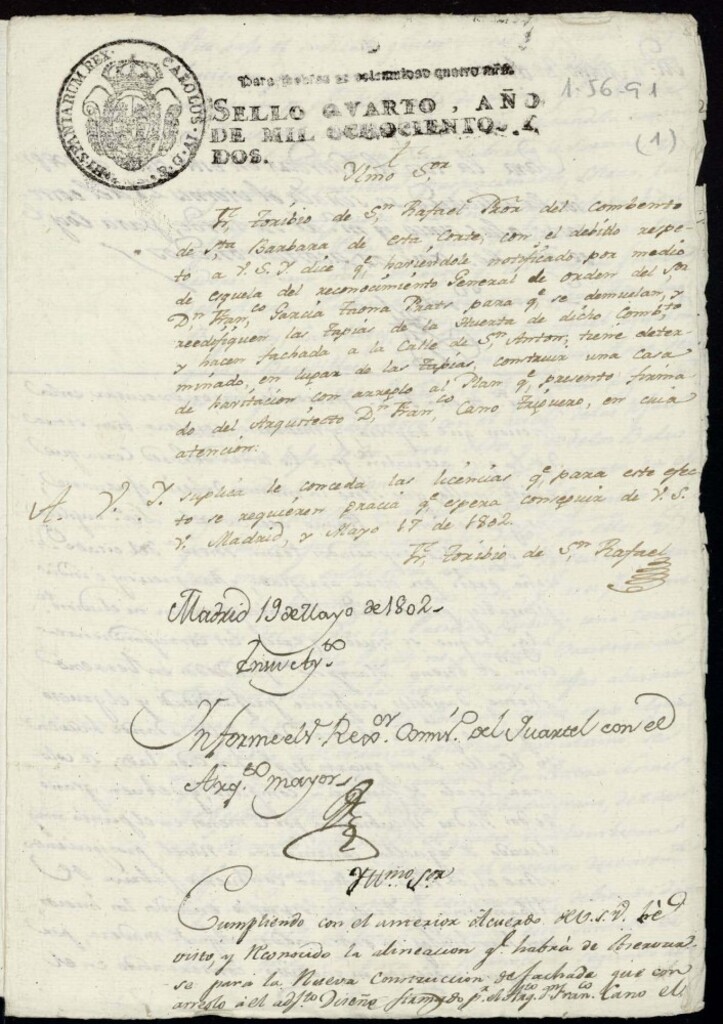 HISPANIARUM REX. CAROLUS IV. D. G.
SELLO QVARTO, AÑO
DE MIL OCHOCIENTOS Y
DOS.
1-56-91
(1)
Ylmo Sor
Fr. Toribio de Sn Rafael Pror del Combento
de Sta Barbara de esta Corte, con el debido respe-
to a V.S.Y. dice qe haviendole notificado por medio
de esquela del reconocimiento General de orden del Sor
Dn Franco Garcia Prats para qe se demuelan, y
reedifiquen las tapias de la Huerta de dicho Combto
y hacen fachada a la Calle de Sn Anton, tiene deter-
minado, en lugar de las tapias, construir una casa
de havitacion con arreglo al Plan qe presento firma
do del Arquitecto Dn Franco Cano Triguero, en cuia
atencion.
A V. Y. suplica le conceda las licencias qe para este efec
to se requieren gracia qe espera conseguir de V.S.
Y. Madrid, y Mayo 17 de 1802.
Fr. Toribio de Sn Rafael
Madrid 19 de Mayo de 1802.
Informe el Sr. Regor Comio. del Quartel con el
Arqto mayor
Yllmo Sor
Cumpliendo con el anterior Acuerdo de V.S.Y. he
visto, y Reconocido la alineacion qe habrá de observar
se para la Nueva Construccion de fachada que con
arreglo á el adjto Diseño firmado pr el Arqto dn Franco Cano el